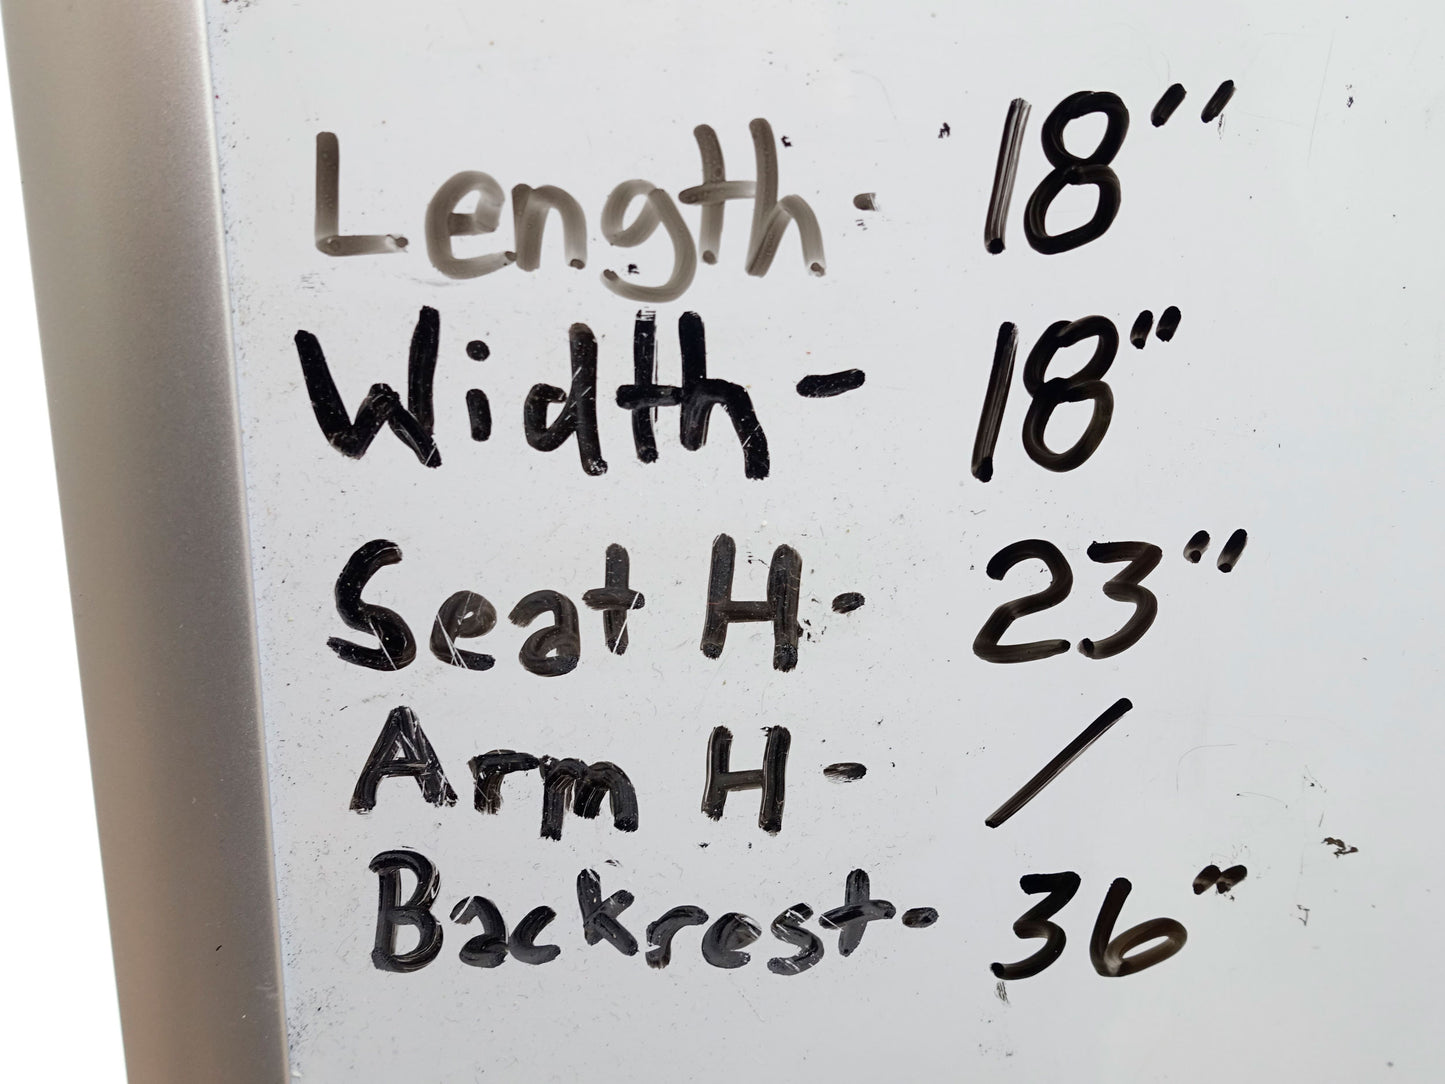 Length- 18''
Width - 18"
Seat H- 23"
Arm H- /
Backrest- 36"